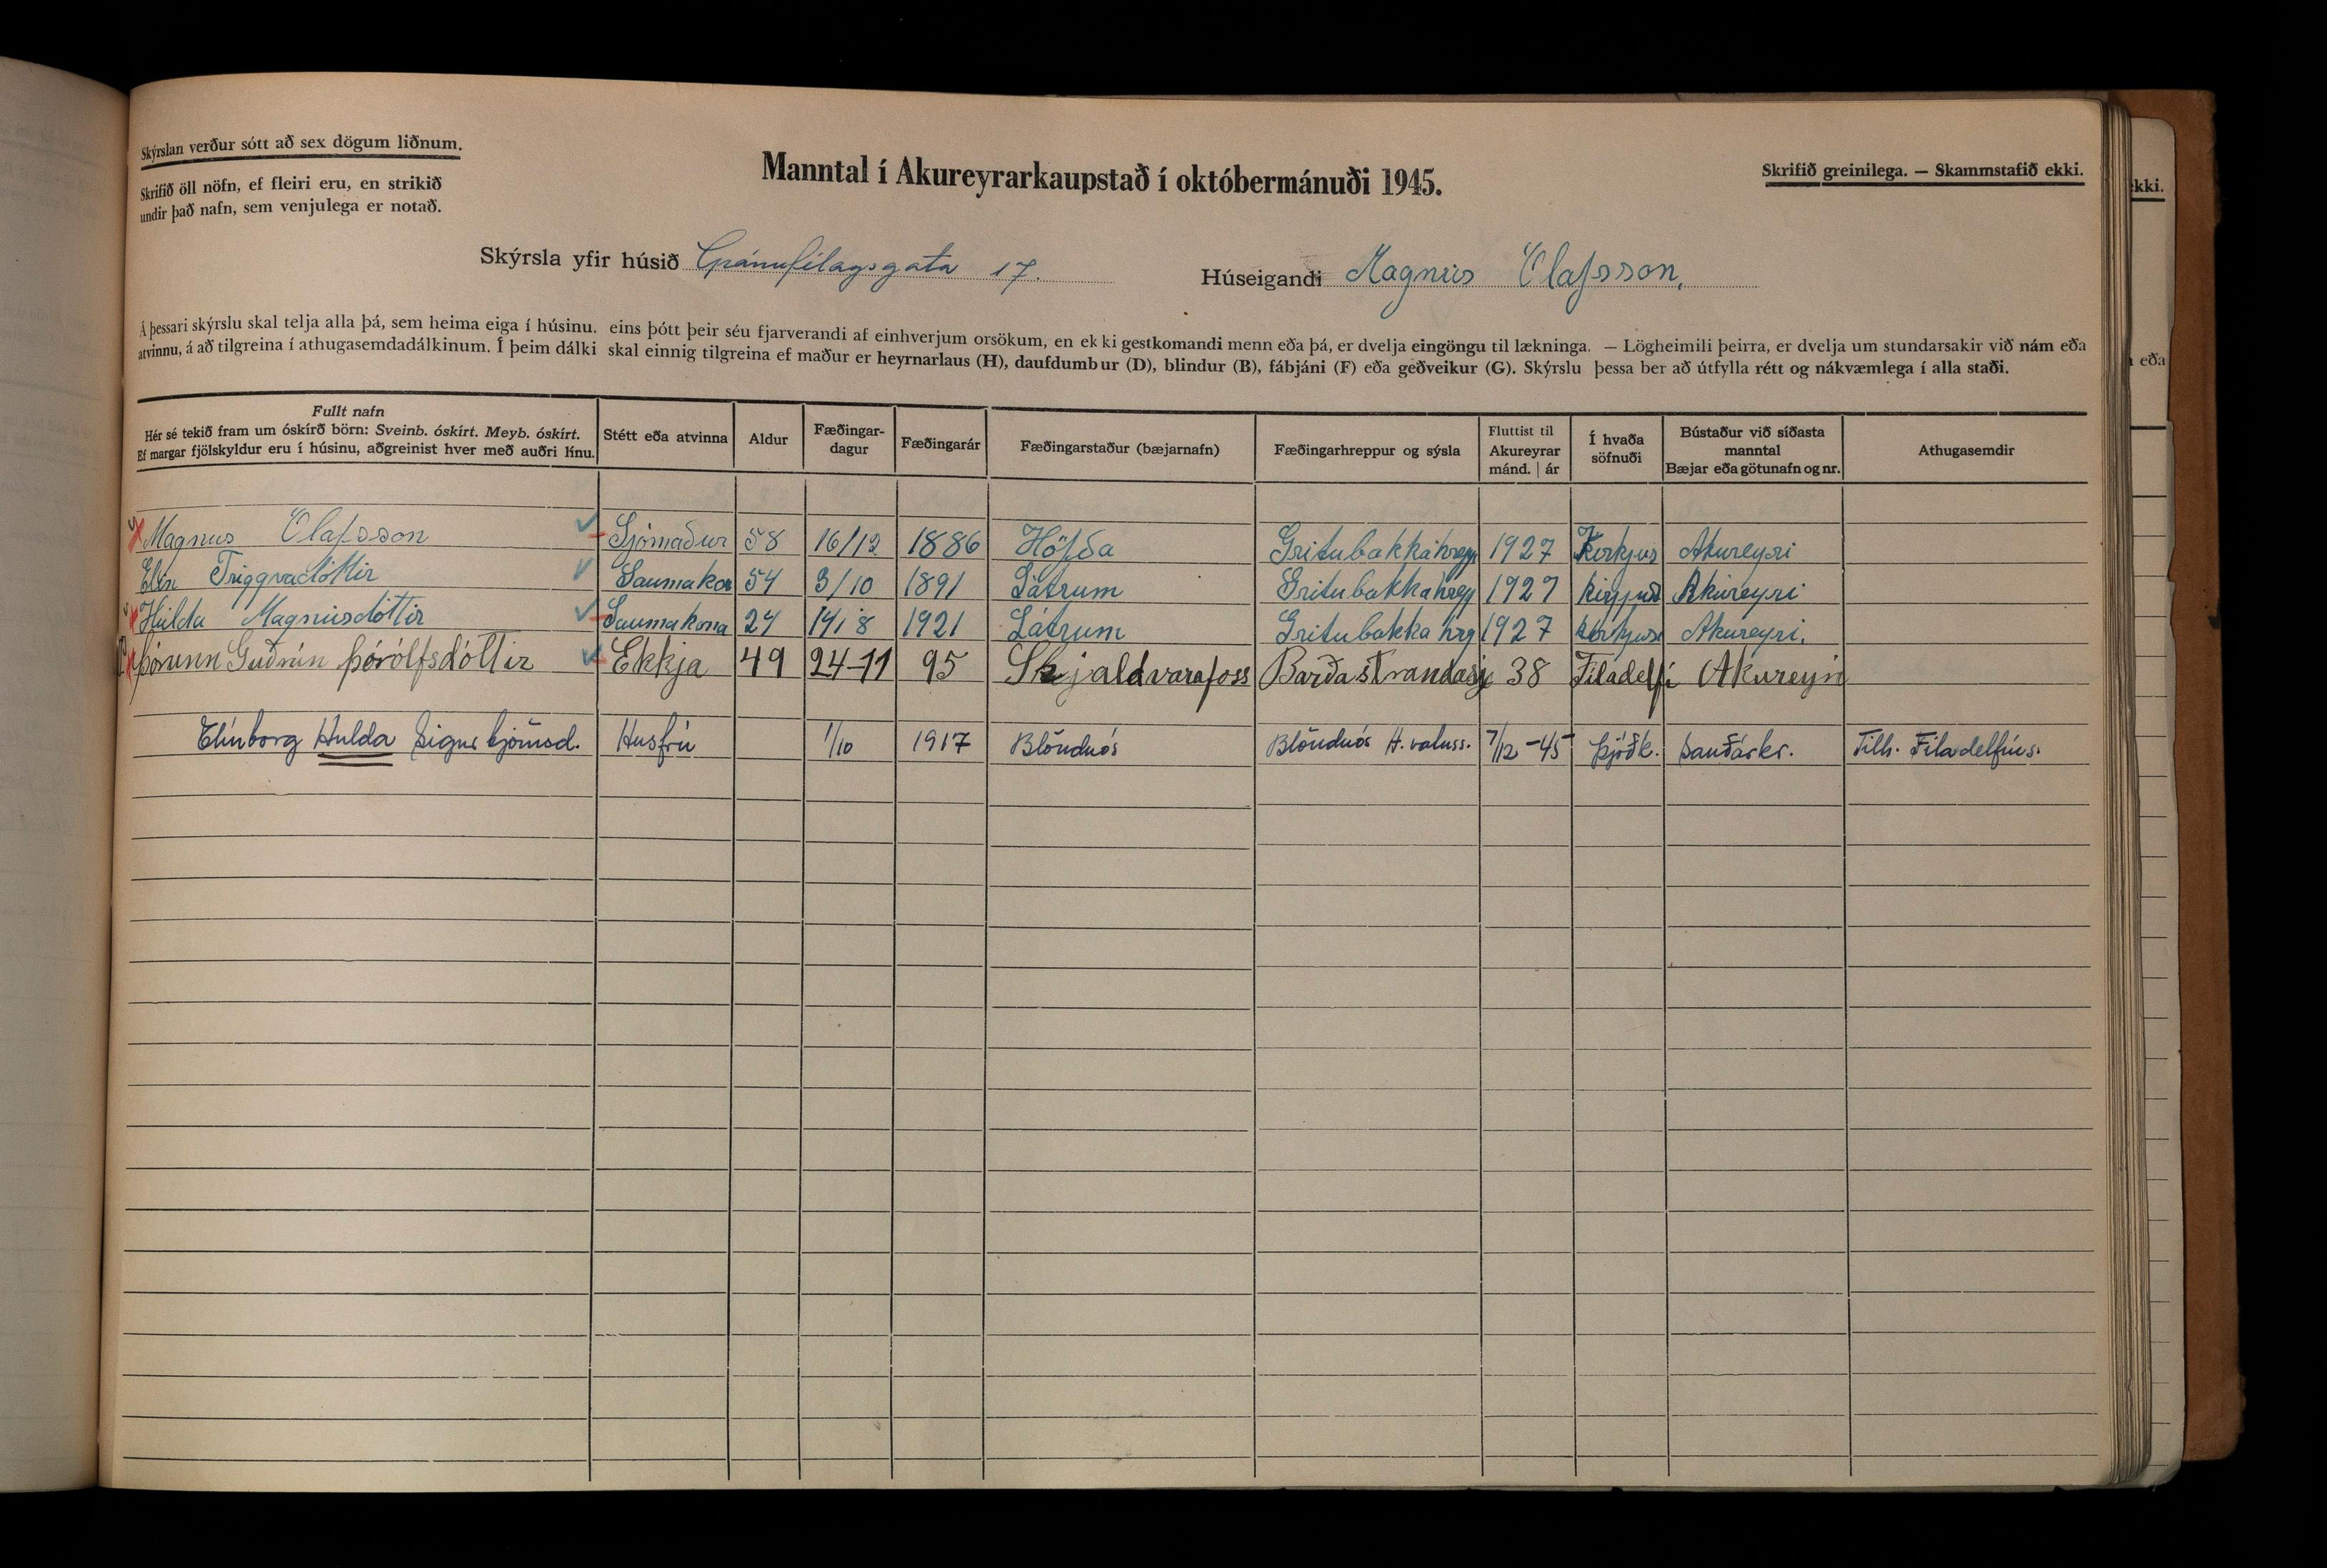 Skýrslan verður sótt að sex dögum liðnum.
Skrifið öll nöfn, ef fleiri eru, en strikið
undir það nafn, sem venjulega er notað.
Manntal í Akureyrarkaupstað í októbermánuði 1945.
Skrifið greinilega. — Skammstafið ekki.
Skýrsla yfir húsið Gránufélagsgata 17.
Húseigandi Magnús Ólafsson,
Á þessari skýrslu skal telja alla þá, sem heima eiga í húsinu, eins þótt þeir séu fjarverandi af einhverjum orsökum, en ekki gestkomandi menn eða þá, er dvelja eingöngu til lækninga. — Lögheimili þeirra, er dvelja um stundarsakir við nám eða
atvinnu, á að tilgreina í athugasemdadálkinum. Í þeim dálki skal einnig tilgreina ef maður er heyrnarlaus (H), daufdumbur (D), blindur (B), fábjáni (F) eða geðveikur (G). Skýrslu þessa ber að útfylla rétt og nákvæmlega í alla staði.
Fullt nafn
Hér sé tekið fram um óskírð börn: Sveinb. óskírt. Meyb. óskírt.
Ef margar fjölskyldur eru í húsinu, aðgreinist hver með auðri línu.
Stétt eða atvinna
Aldur
Fæðingar-
dagur
Fæðingarár
Fæðingarstaður (bæjarnafn)
Fæðingarhreppur og sýsla
Fluttist til
Akureyrar
mánd. | ár
Í hvaða
söfnuði
Bústaður við síðasta
manntal
Bæjar eða götunafn og nr.
Athugasemdir
Magnus Ólafsson Sjómaður 58 16/12 1886 Höfða Gritubakkahrepp 1927 Kirkjus Akureyri
Elin Triggvadóttir Saumakon 54 3/10 1891 Látrum Gritubakkahrepp 1927 Akureyri
Hulda Magnúsdóttir Saumakona 24 14/8 1921 Látrum Gritubakka hrg 1927 Akureyri.
Þórunn Guðrún Þórólfsdóttir Ekkja 49 24-11 95 Skjaldvarafoss Barðastrandasý 38 Filadelfi Akureyri
Elínborg Hulda Sigurbjörnsd. Husfrú 1/10 1917 Blönduós Blönduós H. vatnss. 7/12-45 Þjóðk. Sauðárkr. Tilh. Filadelfíus.
kki.
eða